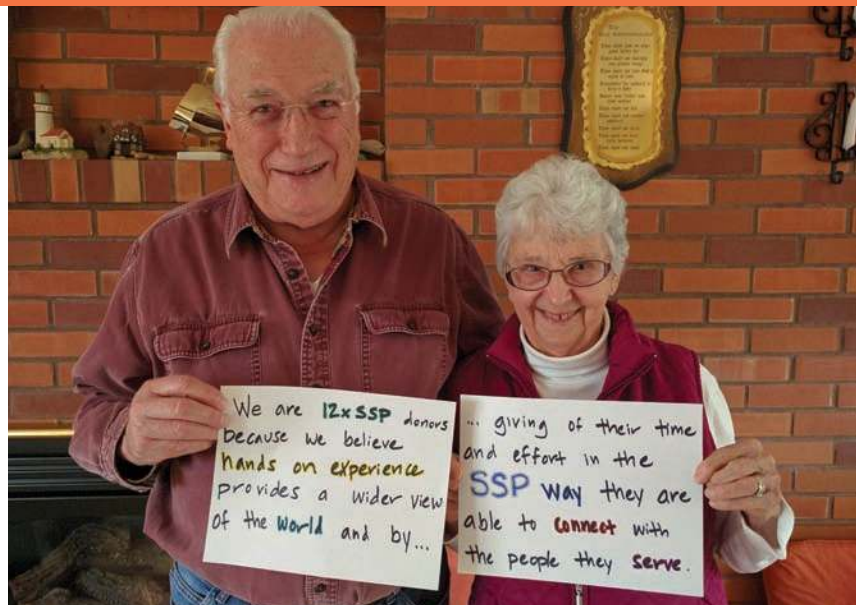 We are 12xSSP donors
because we believe
hands on experience
provides a wider view
of the world and by...
... giving of their time
and effort in the
SSP way they are
able to connect with
the people they serve.